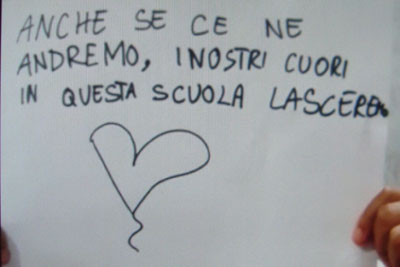 ANCHE SE CE NE
ANDREMO, I NOSTRI CUORI
IN QUESTA SCUOLA